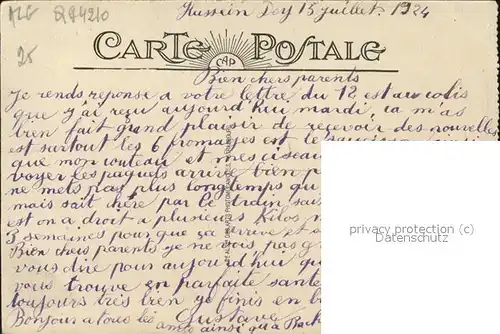 ALG 294210
25
Hussein Dey 15 juillet 1924
CARTE POSTALE
CAP
Bien chers parents
Je rends reponse a votre lettre du 12 est au colis
que y'ai reçu aujourd'hui mardi, ca m'as
bien fait grand plaisir de recevoir des nouvelles
est surtout les 6 fromages est le
que mon couteau et mes ciseau
voyer les paquets arrive bien
ne mets pas plus longtemps qu
mais sait chère par le train
est on a droit a plusieurs kilos
3 semaines pour que ça arrive et
Bien chers parents je ne vois pas
vous dire pour aujourd'hui
vous trouve en parfaite sante
toujours très bien je finis en
Bonjour a tous les Gustave
amis ainsi qu'a
privacy protection (c)
Datenschutz